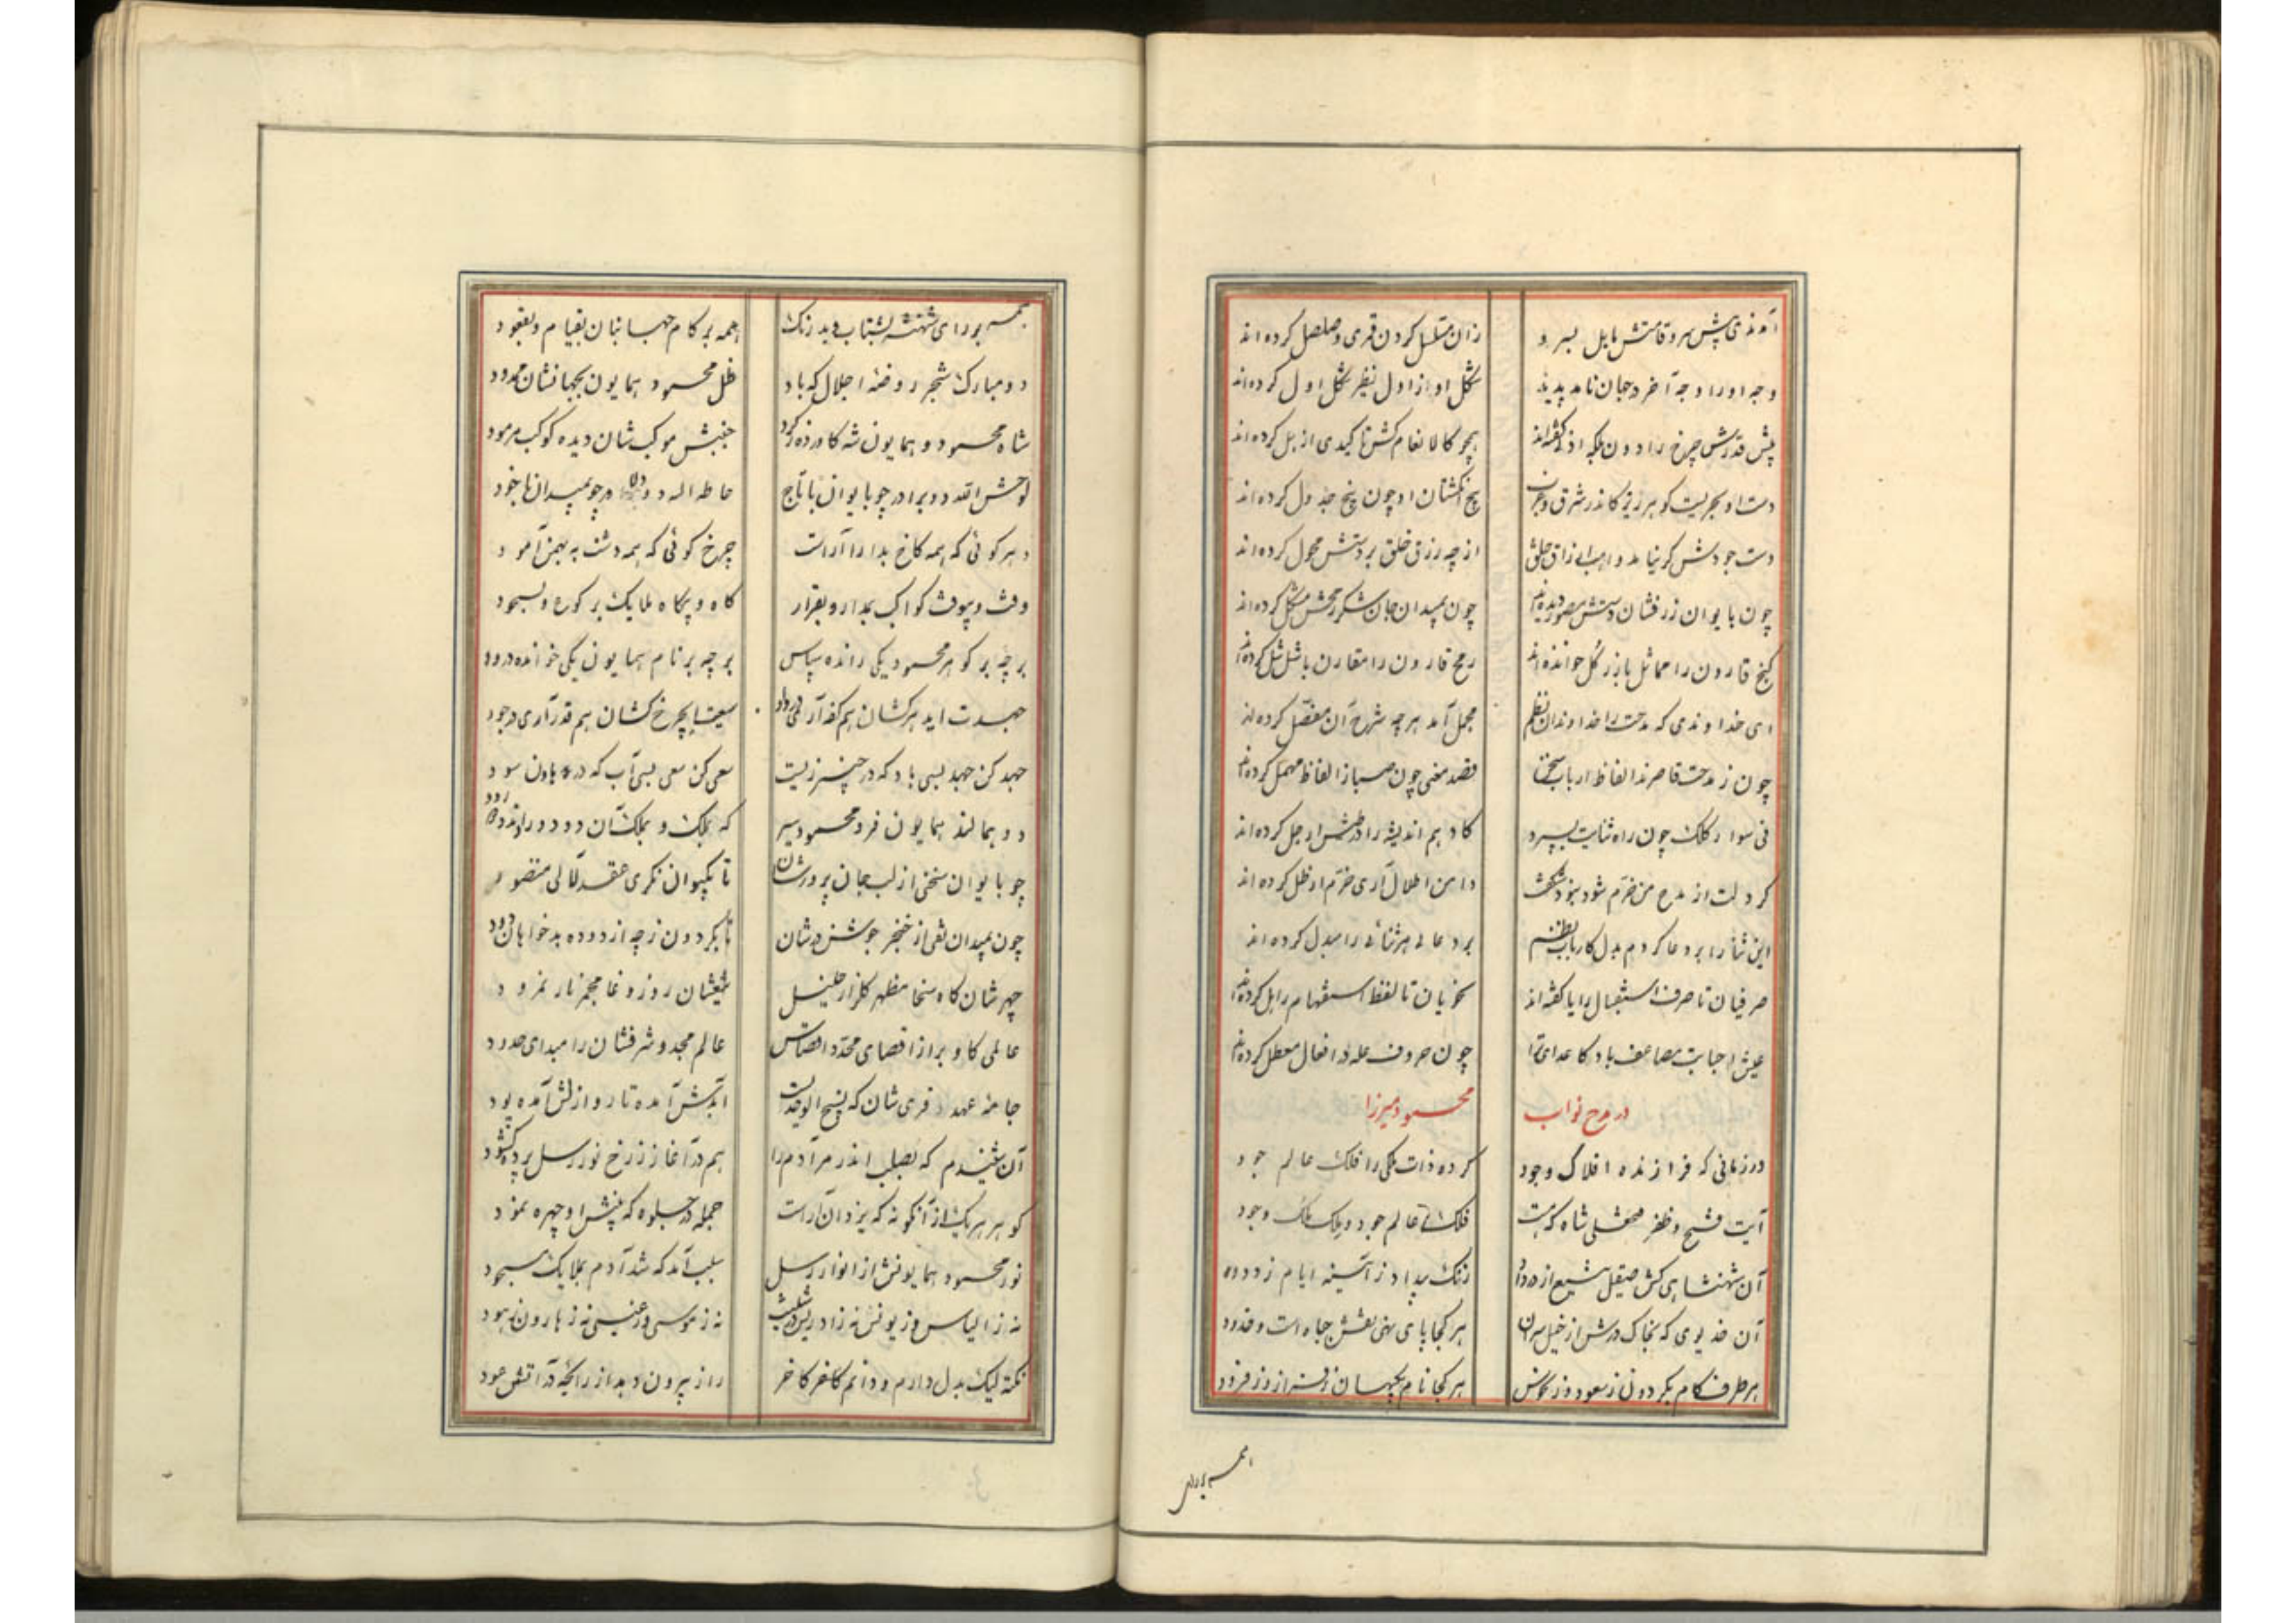 آمدندی پیش سرو قامتش مایل بسرو زان مسلسل گردن قمری و صلصل کرده اند
وجه او را وجه آخر در جهان نامد پدید شکل او از اول نظر شکل اول کرده اند
پیش قدرش چرخ را دون بلکه ادنی گفته اند همچو کالانعام کش تاکیدی از بل کرده اند
دست او بحریست گوهر ریز کاندر شرق و غرب پنج انگشتان او چون پنج جدول کرده اند
دست جودش گر نیامد واهب ارزاق خلق از چه رزق خلق بر دستش محول کرده اند
چون بایوان زرفشان دستش مصور دیده اند چون بمیدان جان شکر رمحش مشکل کرده اند
گنج قارون را مماثل با زر گل خوانده اند رمح قارون را مقارن با شل شل کرده اند
ای خداوندی که مدحت را خداوندان نظم مجمل آمد هر چه شرح آن مفصل کرده اند
چون ز مدحت قاصرند الفاظ ارباب سخن قصد معنی چون صبا ز الفاظ مهمل کرده اند
نی سوار کلک چون راه ثنایت بسپرد کادهم اندیشه را در طبعش ارجل کرده اند
گر دلت از مدح من خرم شود نبود شگفت دامن اطلال آری خرم از طل کرده اند
این ثنا را بر دعا کردم بدل کارباب نظم بر دعای هر ثنائی را مبدل کرده اند
صرفیان تا حرف استقبال را یا گفته اند نحویان تا لفظ استفهام را هل کرده اند
عیش احبابت مضاعف باد کاعدای ترا چون حروف عله در افعال معطل کرده اند
در مدح نواب محمود میرزا
در زمانی که فرازنده افلاک وجود کرده ذات ملکی را فلک عالم جود
آیت فتح و ظفر فتحعلی شاه که هست فلک عالم جود و ملک ملک وجود
آن شهنشاهی کش صیقل شمشیر از داد زنگ بیداد ز آئینه ایام زدوده
آن خدیوی که بخاک درش از خیل سران هر کجا پای نهی نقش جباه است و خدود
هر طرف کام بگردون ز سعود و ز نحوس هر کجا نام بگیهان ز فراز و ز فرود
همه بر رای
همه بر رای شهنشه بشتاب و بدرنگ همه بر کام جهانبان بقیام و بقعود
دو مبارک شجر روضه اجلال که باد ظل محمود و همایون بجهانشان ممدود
شاه محمود و همایون شه کاورده گرد جنبش موکب شان دیده کوکب مرمود
لوحش الله دو برادر چو بایوان با تاج حاطه الله دو دلاور چو بمیدان با خود
دهر گوئی که همه کاخ بدارا آراست چرخ گوئی که همه دشت به بهمن آمود
وقت و بیوقت کواکب بمدار و بقرار گاه و بیگاه ملایک برکوع و بسجود
بر چه بر گوهر محمود یکی رانده سپاس بر چه بر نام همایون یکی خوانده درود
جهد کن جهد بسی باد که در چنبر زیست سعی کن سعی بسی آب که در هاون سود
دو همالند همایون فر و محمود سیر
چو بایوان سخنی از لب جان پرورشان تا بکیوان نگری عقد لآلی منضود
چون بمیدان تفی از خنجر جوشن درشان تا بگردون ز چه از دوده بدخواهان دود
چهرشان گاه سخا مظهر گلزار خلیل تیغشان روز وغا مجمر نار نمرود
عالمی کاو بر از اقصای محدد اقصاش عالم مجد و شرفشان را مبدای حدود
جامه عهد فری شان که نسیج الوحدیست ابدش آمده تار و ازلش آمده پود
آن شنیدم که بصلب اندر مر آدم را هم در آغاز ز رخ نور رسل پرده گشود
گوهر هر یک از آنگونه که یزدان آراست جمله در جلوه که پیش او چهره نمود
نور محمود و همایونش از انوار رسل سبب آمد که شد آدم بملایک مسجود
نه ز الیاس و ز یونس نه ز ادریس و ز شیث نه ز موسی و ز عیسی نه ز هارون نه ز هود
نکته لیک بدل دارم و دانم کآخر راز بیرون دهد از رائحه در آتش عود